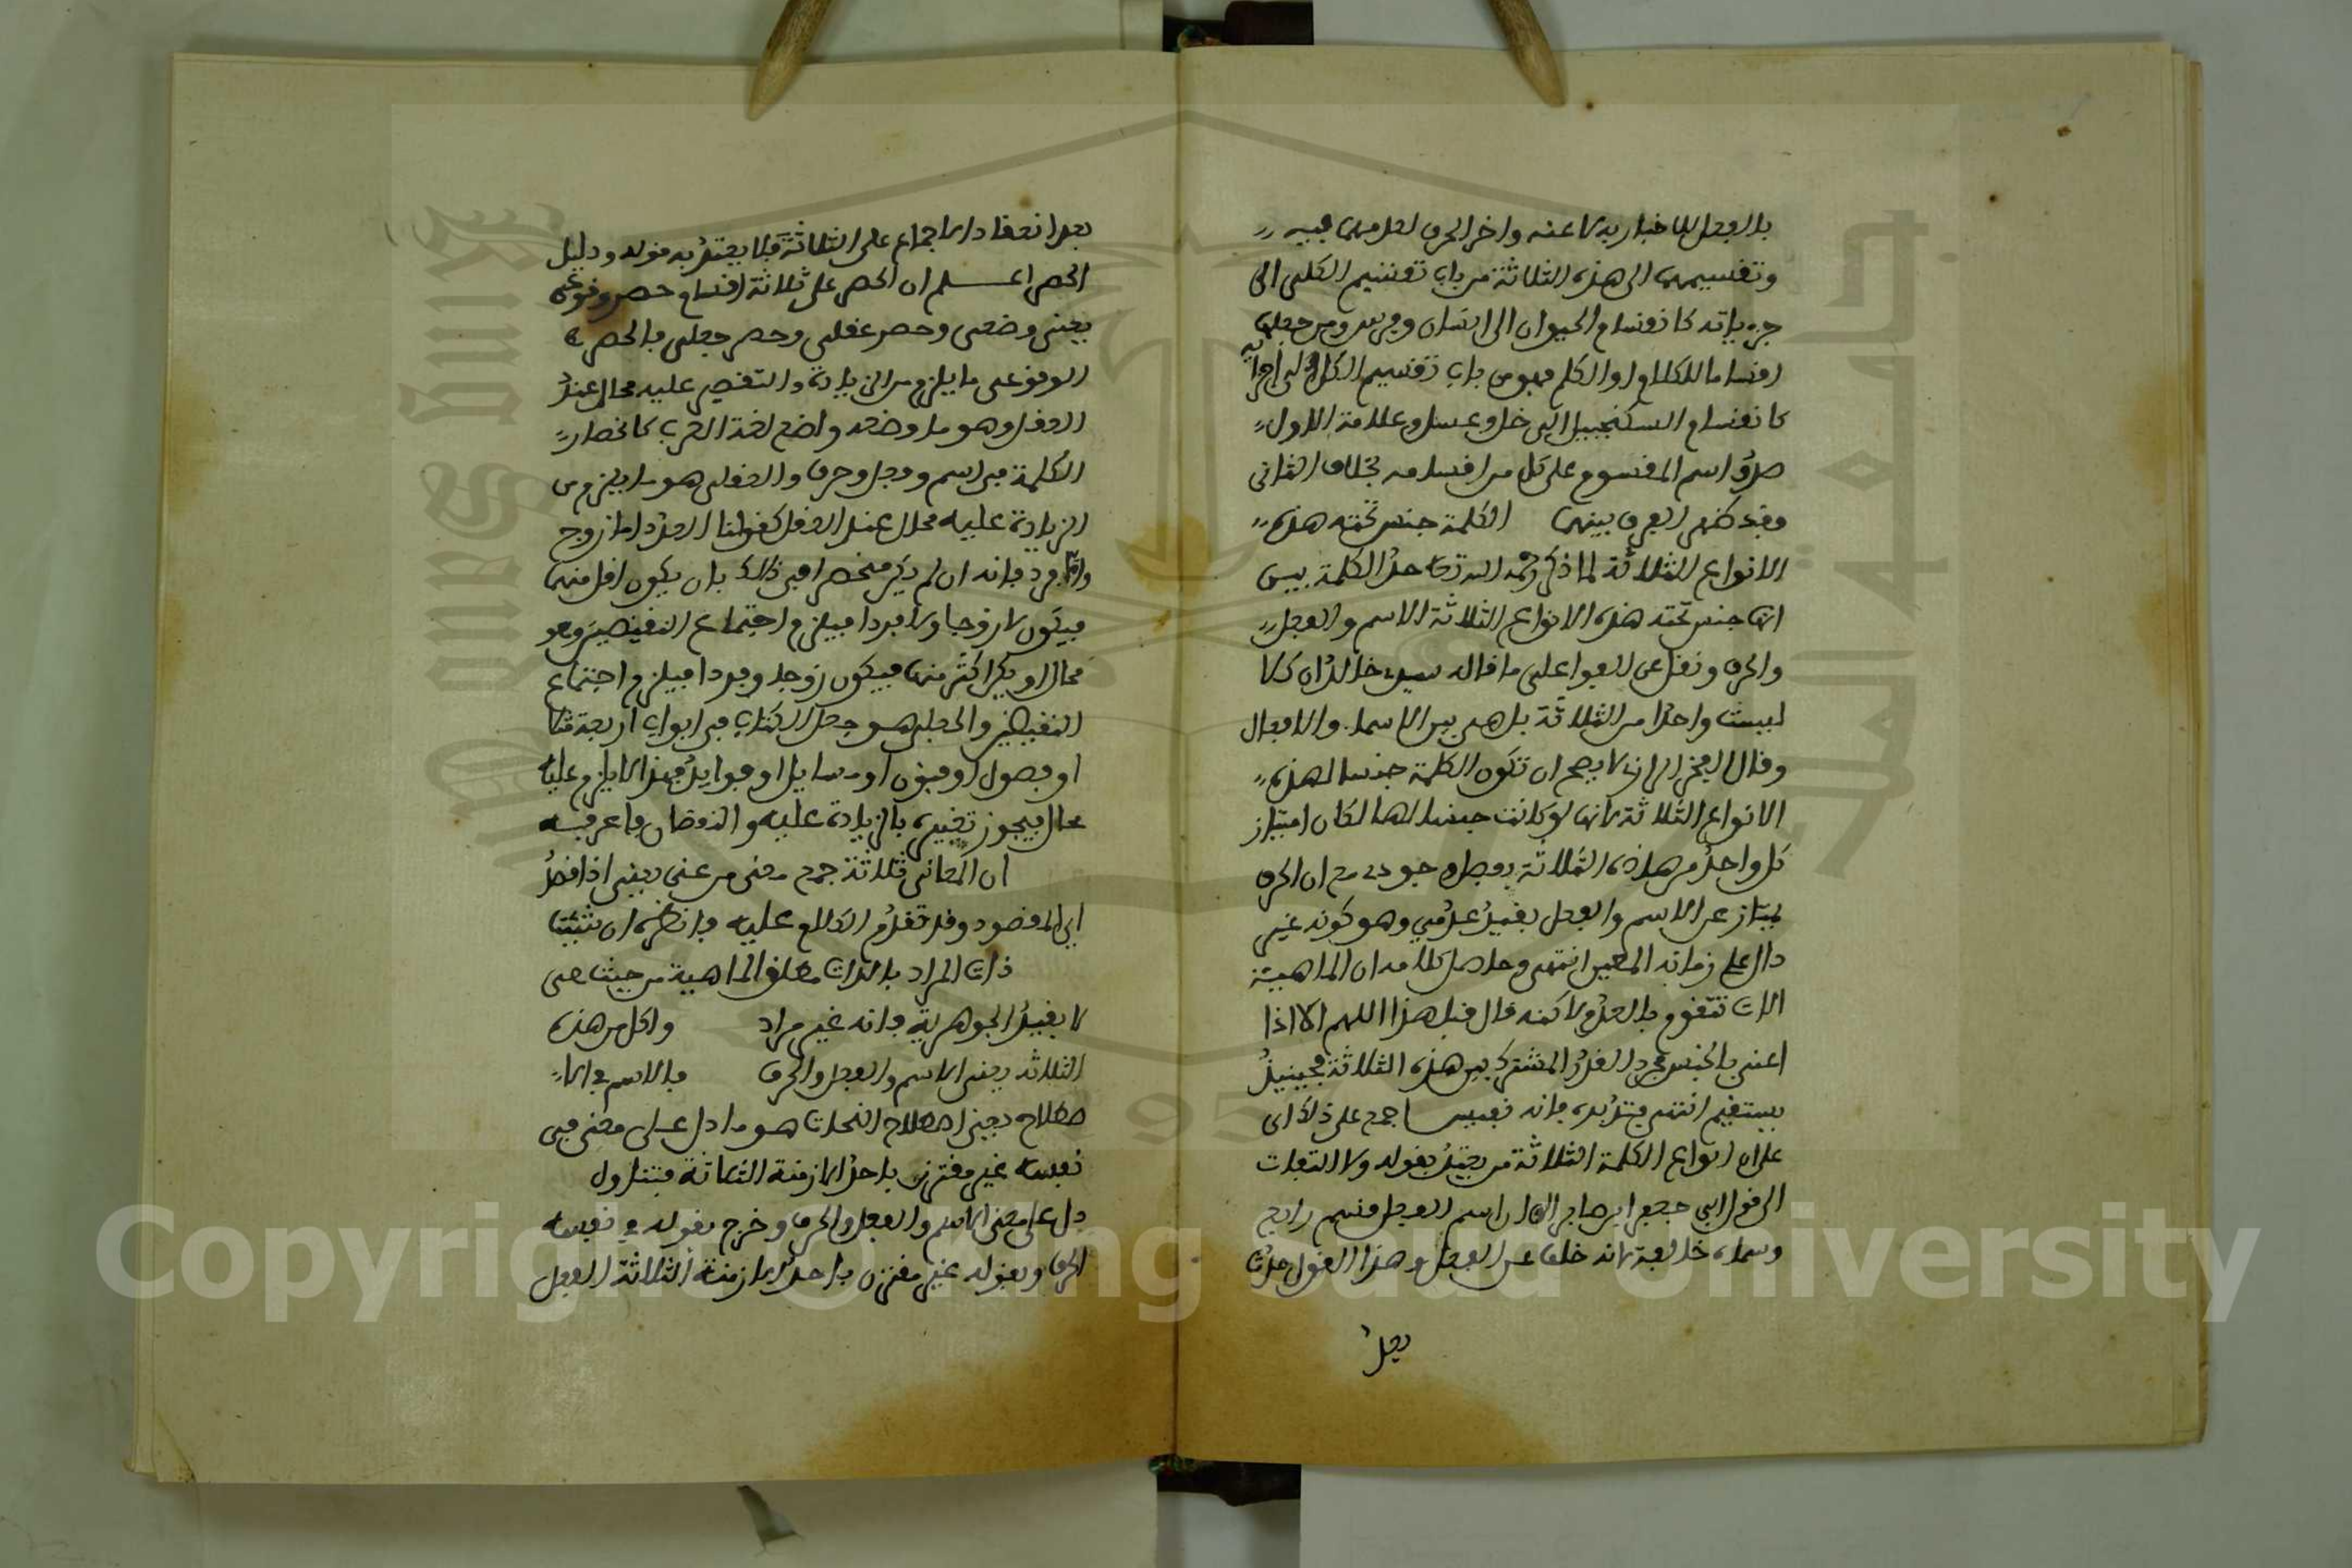 بالفعل للاخبار به لا عنه واخر الحرف لعدمهما فيه
وتقسيمها الى هذه الثلاثة من باب تقسيم الكلى الى
جزءياته كانقسام الحيوان الى انسان وفرس ومن جعلها
اقساما للكلام او الكلم فهو من باب تقسيم الكل الى اجزائه
كانقسام السكنجبيل الى خل وعسل وعلامة الاول
صدق اسم المقسوم على كل من اقسامه بخلاف الثانى
وقد ظهر الفرق بينهما الكلمة جنس تحته هذه
الانواع الثلاثة لما ذكر رحمه الله تعا حد الكلمة بين
انها جنس تحته هذه الانواع الثلاثة الاسم والفعل
والحرف ونقل عن الفوا على ما قاله سيد خالد ان كلا
ليست واحدا من الثلاثة بل هى بين الاسما والافعال
وقال الفخر الرازى لا يصح ان تكون الكلمة جنسا لهذه
الانواع الثلاثة لانها لو كانت جنسا لها لكان امتياز
كل واحد من هاذه الثلاثة بفصل وجودى مع ان الحرف
يمتاز عن الاسم والفعل بقيد عدمي وهو كونه غير
دال على زمانه المعين انتهى وحاصل كلامه ان الماهية
لا تتقوم بالعدم لاكنه قال قبل هذا اللهم الا اذا
اعنى بالجنس مجرد القدر المشترك بين هذه الثلاثة فحينيذ
يستقيم انتهى فتدبره فانه نفيس اجمع على ذلك اى
على ان انواع الكلمة الثلاثة من يعتد بقوله ولا التفات
الى قول ابى جعفر ابن صابر ان اسم الفعل قسم رابع
وسماه خالفة لانه خلف عن الفعل وهذا القول حدث
بعد
بعد انعقاد الاجماع على الثلاثة فلا يعتد به قوله ودليل
الحصر اعلم ان الحصر على ثلاثة اقسام حصر وقوعى
يعنى وضعى وحصر عقلى وحصر جعلى فالحصر
الوقوعى ما يلزم من الزيادة والنقص عليه محال عند
العقل وهو ما وضعه واضع لغة العرب كانحصار
الكلمة فى اسم وفعل وحرف والعقلى هو ما يلزم من
الزيادة عليه محال عند العقل كقولنا العدد اما زوج
واما فرد فانه ان لم يكن منحصرا فى ذلك بان يكون اقل منهما
فيكون لا زوجا ولا فردا فيلزم اجتماع النقيضين وهو
محال او يكن اكثر منهما فيكون زوجا وفردا فيلزم اجتماع
النقيضين والجعلى هو جعل الكتاب فى ابواب اربعة مثلا
او فصول او فنون او مسايل او فوايد فهذا لا يلزم عليه
محال فيجوز تغييره بالزيادة عليه والنقصان فاعرفه
ان المعانى ثلاثة جمع معنى من عنى يعنى اذا قصد
اى المقصود وقد تقدم الكلام عليه فانظره ان شئت
ذات المراد بالذات مطلق الماهية من حيث هى
لا بقيد الجوهرية فانه غير مراد واكل من هذه
الثلاثه يعنى الاسم والفعل والحرف فالاسم فى الا
صطلاح يعنى اصطلاح النحات هو ما دل على معنى فى
نفسه غير مقترن باحد الازمنة الثلاثة فتناول
دل على معنى الاسم والفعل والحرف وخرج بقوله فى نفسه
الحرف وبقوله غير مقترن باحد الازمنة الثلاثة الفعل
Copyright © King Saud University